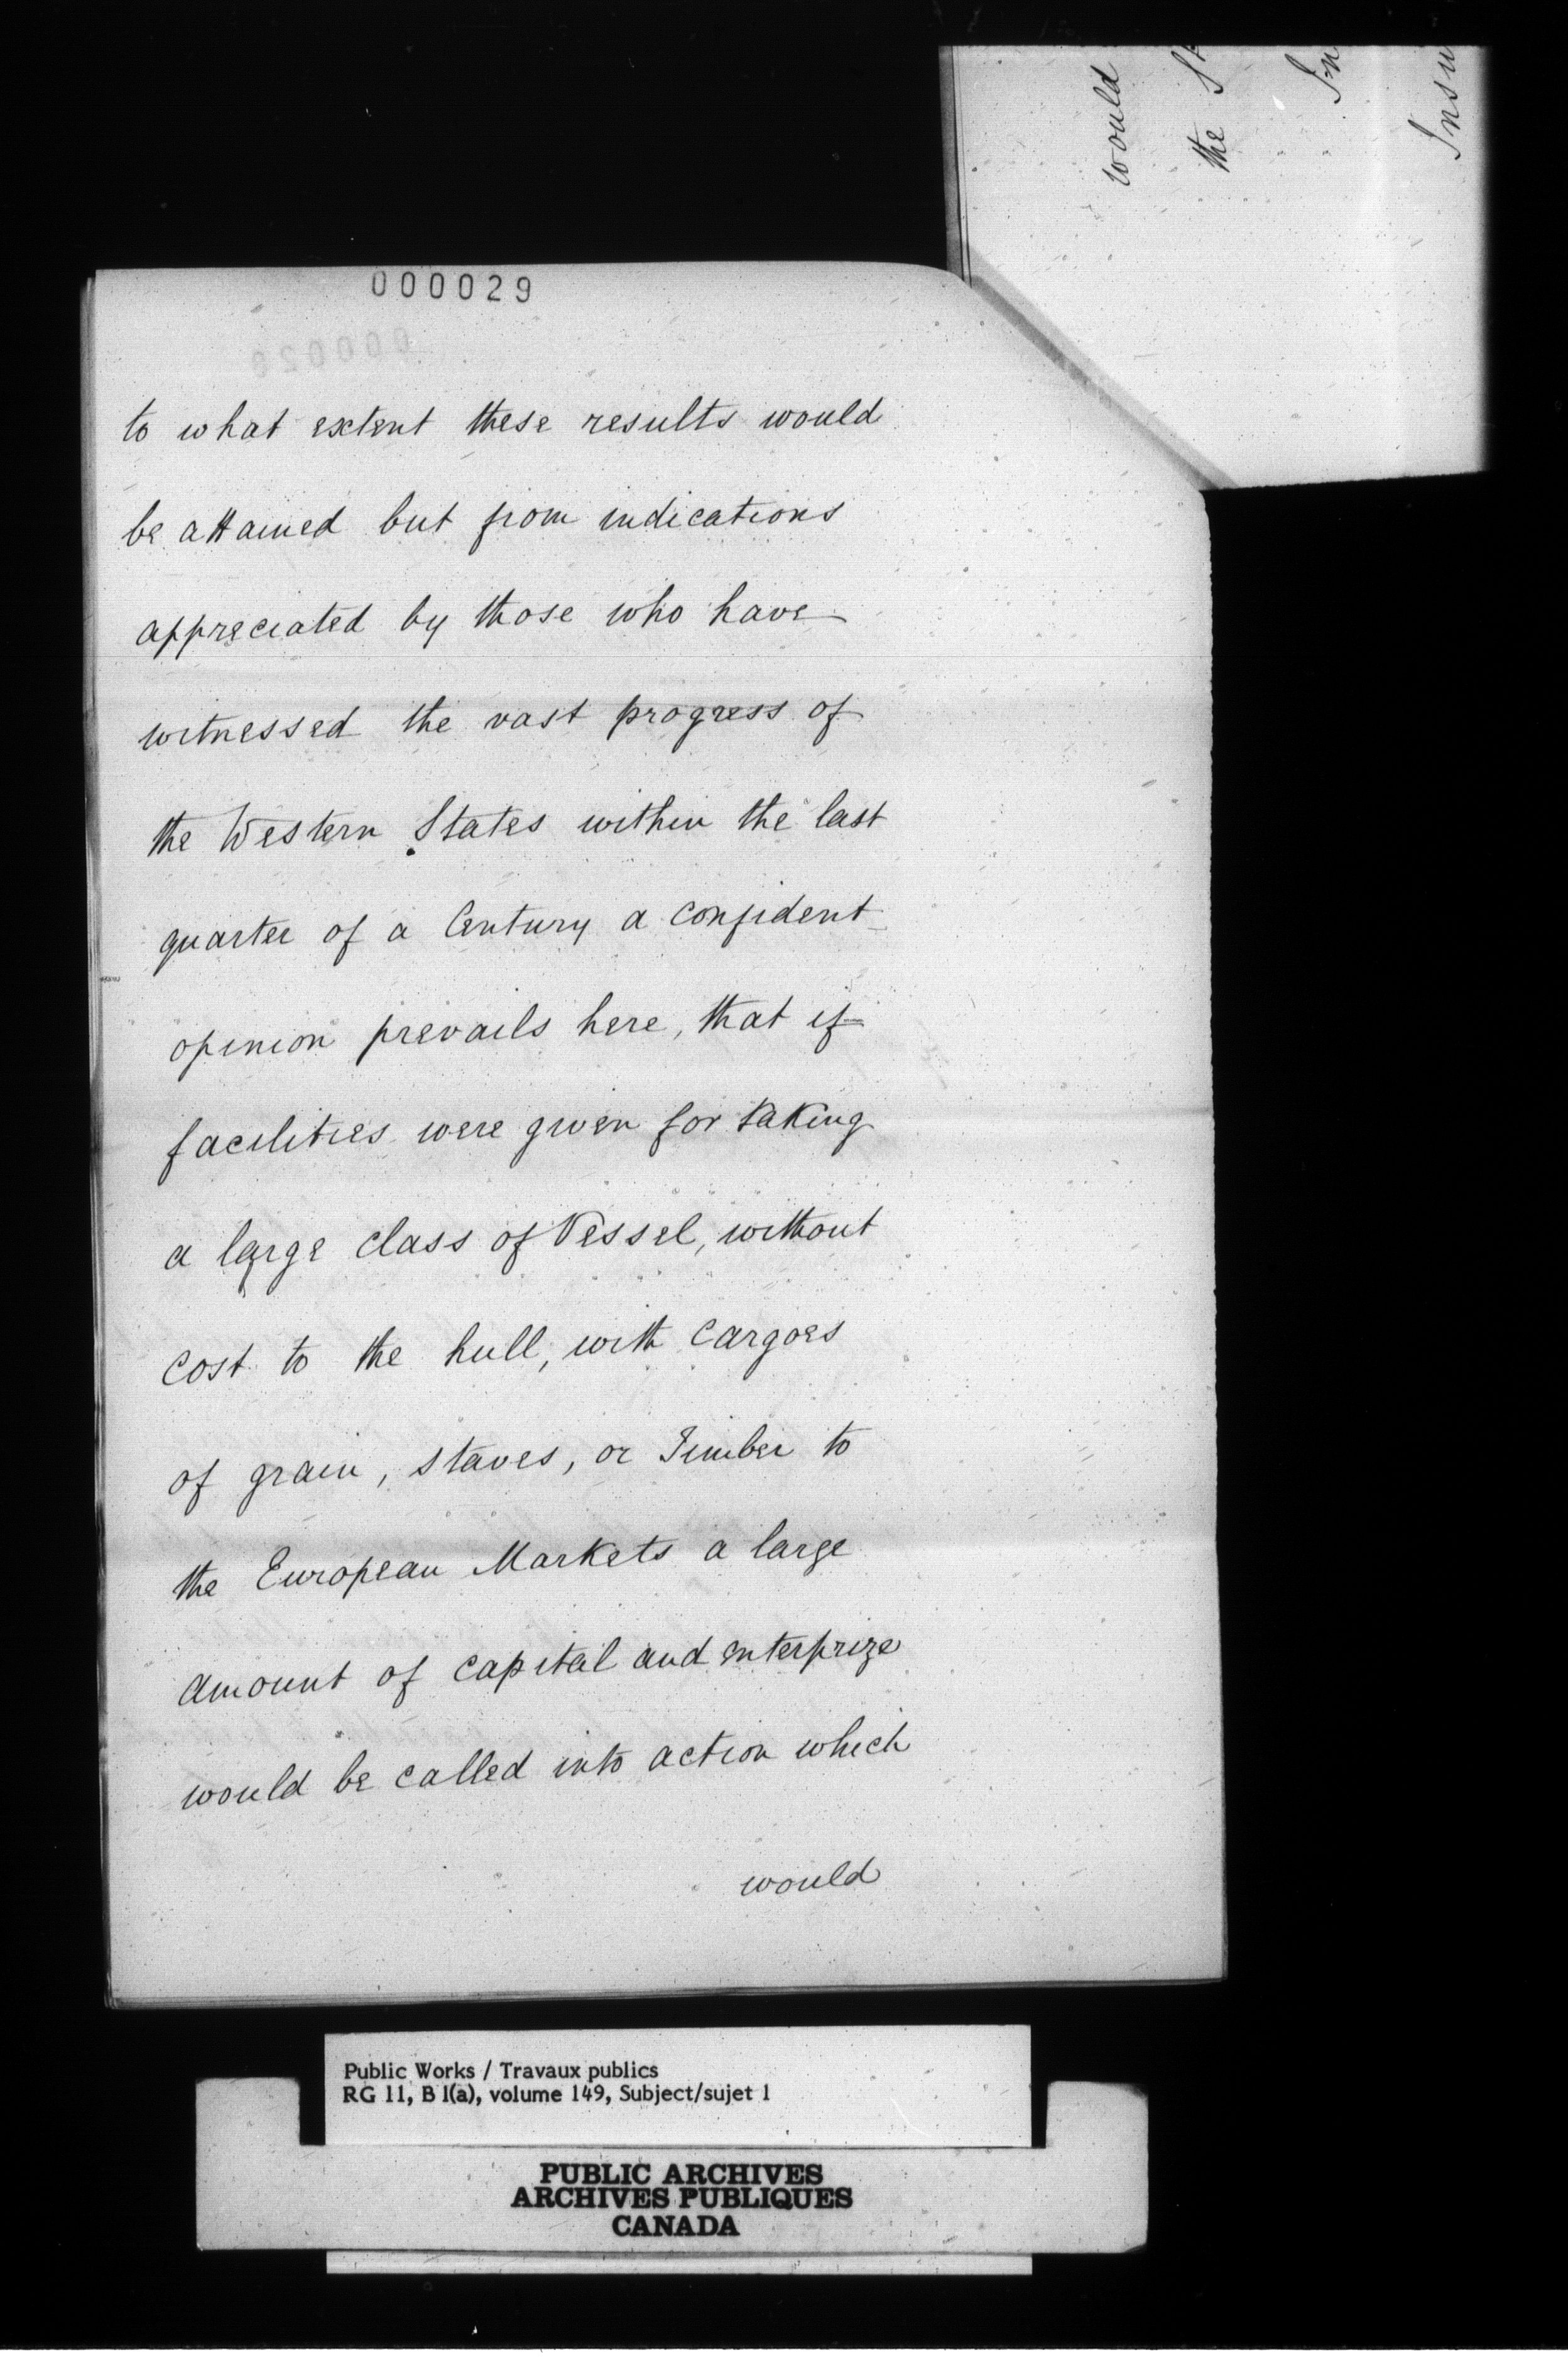 would
the
In
Insu
000029
to what extent these results would
be attained but from indications
appreciated by those who have
witnessed the vast progress of
the Western States within the last
quarter of a Century a confident
opinion prevails here, that if
facilities were given for taking
a large class of Vessel, without
cost to the hull, with Cargoes
of grain, staves, or Timber to
the European Markets a large
amount of capital and enterprize
would be called into action which
would
Public Works / Travaux publics
RG 11, B 1(a), volume 149, Subject/sujet 1
PUBLIC ARCHIVES
ARCHIVES PUBLIQUES
CANADA